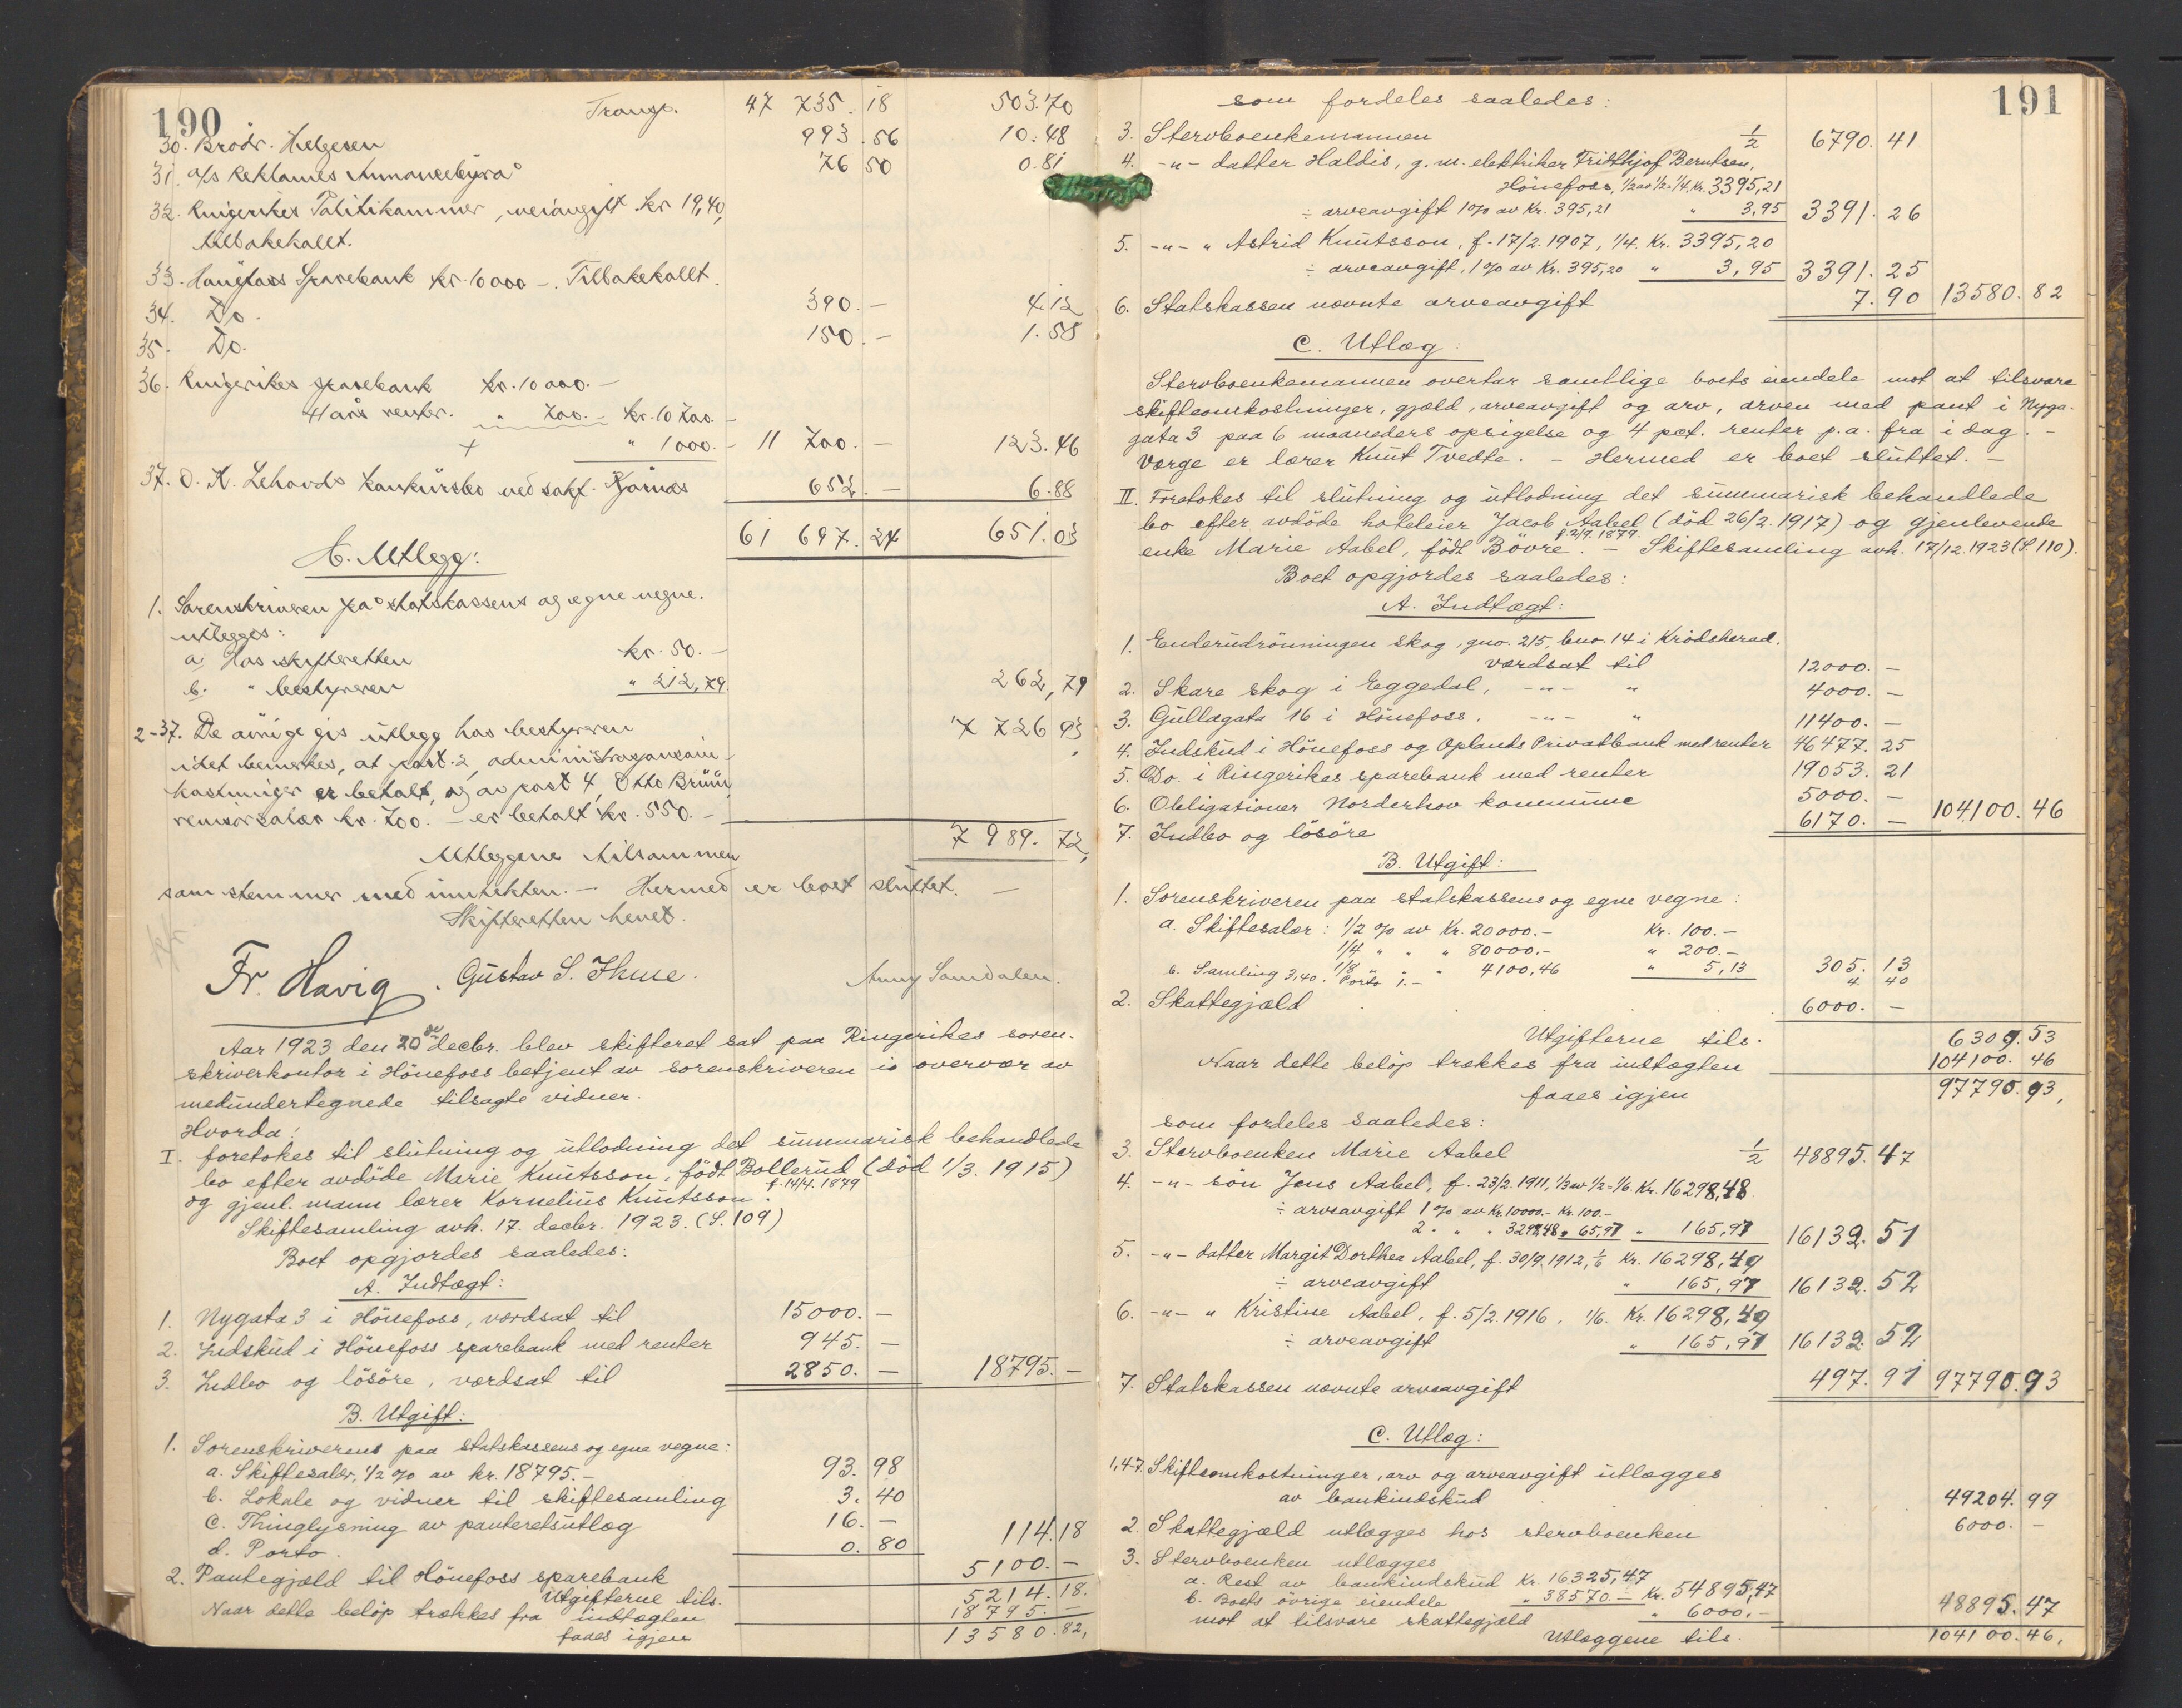 190
Transp. 47 735. 18 503.70
30. Brødr. Helgesen 993.56 10.48
31. A/S Reklames Annoncebyrå 76 50 0.81
32. Ringerikes Politikammer, veiavgift kr 19,40,
tilbakekallt.
33. Hønefoss Sparebank kr. 10000 -. Tilbakekallt.
34. Do. 390.- 4.12
35. Do. 150.- 1.58
36. Ringerikes sparebank kr. 10000.-
4 års renter. " 700.- kr. 10700.-
+ " 1000.- 11 700.- 123.46
37. O. K. Lehards konkursbo ved sakf. Kjørnæs 652.- 6.88
61 697.24 651.03
C. Utlegg:
1. Sorenskriveren på statskassens og egne vegne.
utlegges:
a. Hos skifteretten kr. 50.-
b. " bestyreren " 212,79. 262,79
2-37. De øvrige gis utlegg hos bestyreren 7 726 93
idet bemerkes, at post 2, administrasjonsom-
kostninger er betalt, og av post 4, Otto Bruun,
revisorsalær kr. 700.- er betalt kr. 550.-
Utleggene tilsammen 7 989.72,
som stemmer med inntekten. - Hermed er boet sluttet. -
Skifteretten hevet.
Fr. Havig. Gustav S. Thue. Anny Samdalen.
Aar 1923 den 20de decbr. blev skifteret sat paa Ringerikes soren-
skriverkontor i Hönefoss betjent av sorenskriveren i overvær av
medundertegnede tilsagte vidner.
Hvorda:
I. foretokes til slutning og utlodning det summarisk behandlede
bo efter avdöde Marie Knutsson, födt Bollerud (död 1/3. 1915)
og gjenl. mann lærer Kornelius Knutsson f. 14/4. 1879.
Skiftesamling avh. 17. decbr. 1923. (S. 109)
Boet opgjordes saaledes:
A. Indtægt:
1. Nygata 3 i Hönefoss, værdsat til 15000.-
2. Indskud i Hönefoss sparebank med renter 945.-
3. Indbo og lösöre, værdsat til 2850.- 18795.-
B. Utgift:
1. Sorenskriverens paa statskassens og egne vegne:
a. Skiftesalær, 1/2 % av kr. 18795.- 93.98
b. Lokale og vidner til skiftesamling 3.40
c. Thinglysning av panteretsutlæg 16.-
d. Porto. 0.80 114.18
2. Pantegjæld til Hönefoss sparebank 5100.-
Utgifterne tils. 5214.18.
Naar dette belöp trækkes fra indtægten 18795.-
faaes igjen 13580.82,
191
som fordeles saaledes:
3. Stervboenkemannen 1/2 6790.41
4. -"- datter Haldis, g. m. elektriker Fridthjof Berntsen,
Hönefoss, 1/2 av 1/2 = 1/4. Kr. 3395,21
÷ arveavgift 1 % av Kr. 395,21 " 3,95 3391.26
5. -"- " Astrid Knutsson, f. 17/2. 1907, 1/4. Kr. 3395,20
÷ arveavgift, 1 % av Kr. 395,20 " 3,95 3391.25
6. Statskassen nævnte arveavgift 7.90 13580.82
C. Utlæg:
Stervboenkemannen overtar samtlige boets eiendele mot at tilsvare
skifteomkostninger, gjæld, arveavgift og arv, arven med pant i Nyga-
gata 3 paa 6 maaneders opsigelse og 4 pct. renter p.a. fra i dag. -
Værge er lærer Knut Tvedte. - Hermed er boet sluttet. -
II. Foretokes til slutning og utlodning det summarisk behandlede
bo efter avdöde hoteleier Jacob Aabel (död 26/2. 1917) og gjenlevende
enke Marie Aabel, födt Bövre f. 2/9. 1879. - Skiftesamling avh. 17/12. 1923 (S. 110).
Boet opgjordes saaledes:
A. Indtægt:
1. Enderudrönningen skog, gno. 215, bno. 14 i Krödsherad.
værdsat til 12000.-
2. Skare skog i Eggedal, -"- " 4000.-
3. Gullagata 16 i Hönefoss, -"- " 11400.-
4. Indskud i Hönefoss og Oplands Privatbank med renter 46477.25
5. Do. i Ringerikes sparebank med renter 19053.21
6. Obligationer Norderhov kommune 5000.-
7. Indbo og lösöre 6170.- 104100.46
B. Utgift:
1. Sorenskriveren paa statskassens og egne vegne:
a. Skiftesalær: 1/2 % av Kr. 20000.- Kr. 100.-
1/4 " " " 80000.- " 200.-
1/8 " " " 4100,46 " 5,13 305.13
b. Samling 3,40. Porto 1.- 4.40
2. Skattegjæld 6000.-
Utgifterne tils. 6309.53
Naar dette belöp trækkes fra indtægten 104100.46
faaes igjen 97790.93,
som fordeles saaledes:
3. Stervboenken Marie Aabel 1/2 48895.47
4. -"- sön Jens Aabel, f. 23/2. 1911, 1/3 av 1/2 = 1/6. Kr. 16298,48.
÷ arveavgift 1 % av Kr. 10000.- Kr. 100.-
2 " " " 3298,48 " 65,97 " 165,97 16132.51
5. -"- datter Margit Dorthea Aabel, f. 30/9. 1912, 1/6 Kr. 16298,49
÷ arveavgift " 165,97 16132.52
6. -"- " Kristine Aabel, f. 5/2. 1916, 1/6. Kr. 16298,49
÷ arveavgift " 165,97 16132.52
7. Statskassen nævnte arveavgift 497.91 97790.93
C. Utlæg:
1,4-7. Skifteomkostninger, arv og arveavgift utlægges
av bankindskud 49204.99
2. Skattegjæld utlægges hos stervboenken 6000.-
3. Stervboenken utlægges
a. Rest av bankindskud Kr. 16325,47
b. Boets övrige eiendele " 38570.- Kr. 54895,47
mot at tilsvare skattegjæld " 6000.- 48895.47
Utlæggene tils. 104100.46,